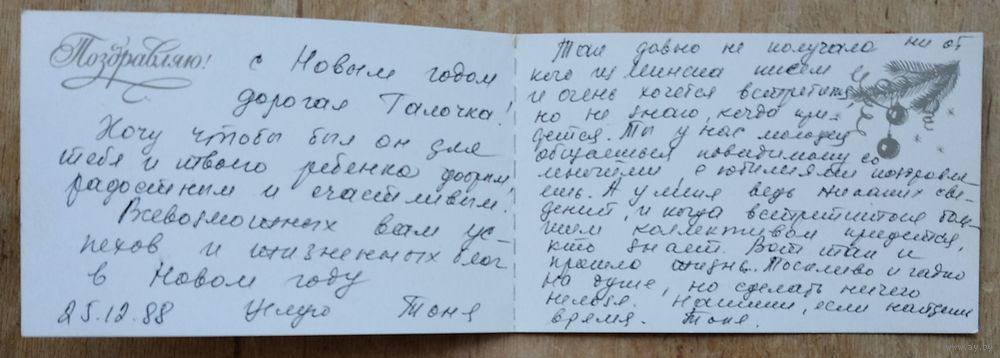 Поздравляю!
с Новым годом
дорогая Галочка!
Хочу чтобы был он для
тебя и твоего ребенка добрым,
радостным и счастливым.
Всевозможных вам ус-
пехов и жизненных благ
в Новом году
25.12.88 Целую Тоня
Так давно не получала ни от
кого из Минска писем
и очень хочется встретиться,
но не знаю, когда при-
дется. Ты у нас молодец
общаешься повидимому со
многими, с юбилеями поздравля-
ешь. А у меня ведь никаких све-
дений, и когда встретиться бо-
шим коллективом придется,
кто знает. Вот так и
прошла жизнь. Тоскливо и гадко
на душе, но сделать ничего
нельзя. Напиши, если найдешь
время. Тоня.
www.ay.by